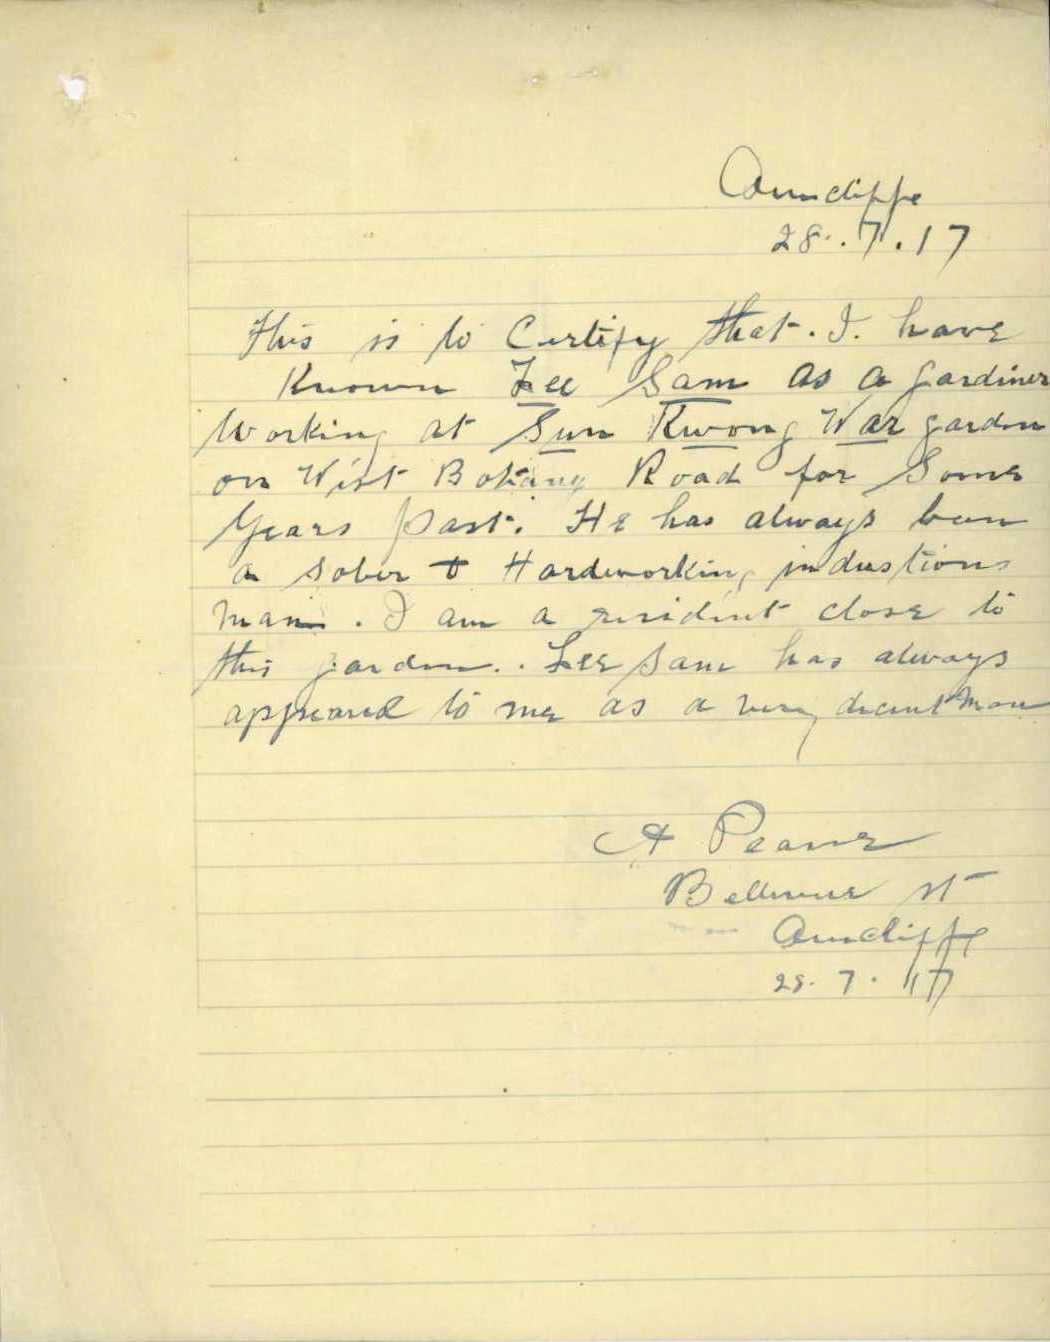 Arncliffe
28.7.17
This is to Certify that. I. have
Known Lee Sam as a gardiner
Working at Sun Kwong War garden
on West Botany Road for Some
Years past. He has always been
a sober & Hardworking industious
man. I am a resident close to
this garden. Lee Sam has always
appeared to me as a very decent man
A Pearce
Bellevue st
Arncliffe
28.7.17